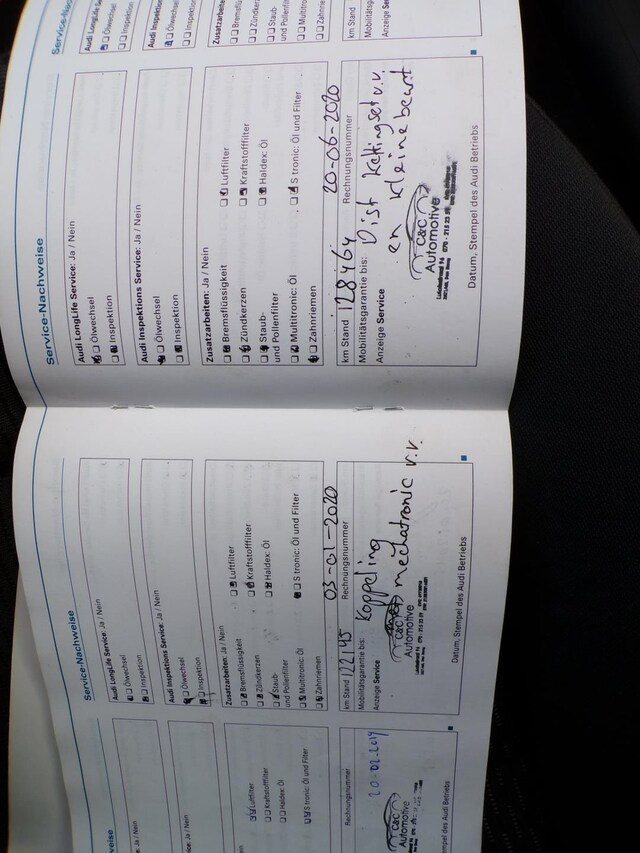 Service-Nachweise
Audi LongLife Service: Ja / Nein
Ölwechsel
Inspektion
Audi Inspektions Service: Ja / Nein
Ölwechsel
Inspektion
Zusatzarbeiten: Ja / Nein
Bremsflüssigkeit
Luftfilter
Zündkerzen
Kraftstofffilter
Staub-
und Pollenfilter
Haldex: Öl
Multitronic: Öl
S tronic: Öl und Filter
Zahnriemen
03-01-2020
km Stand 122145
Rechnungsnummer
Mobilitätsgarantie bis:
Koppeling
Anzeige Service
mechatronic v.v.
C&C
Automotive
Datum, Stempel des Audi Betriebs
Service-Nachweise
Audi LongLife Service: Ja / Nein
Ölwechsel
Inspektion
Audi Inspektions Service: Ja / Nein
Ölwechsel
Inspektion
Zusatzarbeiten: Ja / Nein
Bremsflüssigkeit
Luftfilter
Zündkerzen
Kraftstofffilter
Staub-
und Pollenfilter
Haldex: Öl
Multitronic: Öl
S tronic: Öl und Filter
Zahnriemen
20-06-2020
km Stand 128464
Rechnungsnummer
Mobilitätsgarantie bis:
Dist kettingset v.v.
Anzeige Service
en kleine beurt
C&C
Automotive
Datum, Stempel des Audi Betriebs
Luftfilter
Kraftstofffilter
Haldex: Öl
S tronic: Öl und Filter
Rechnungsnummer
C&C
Automotive
Datum, Stempel des Audi Betriebs
Ölwechsel
Zusatzarbeiten
Staub-
und Pollenfilter
km Stand
Anzeige